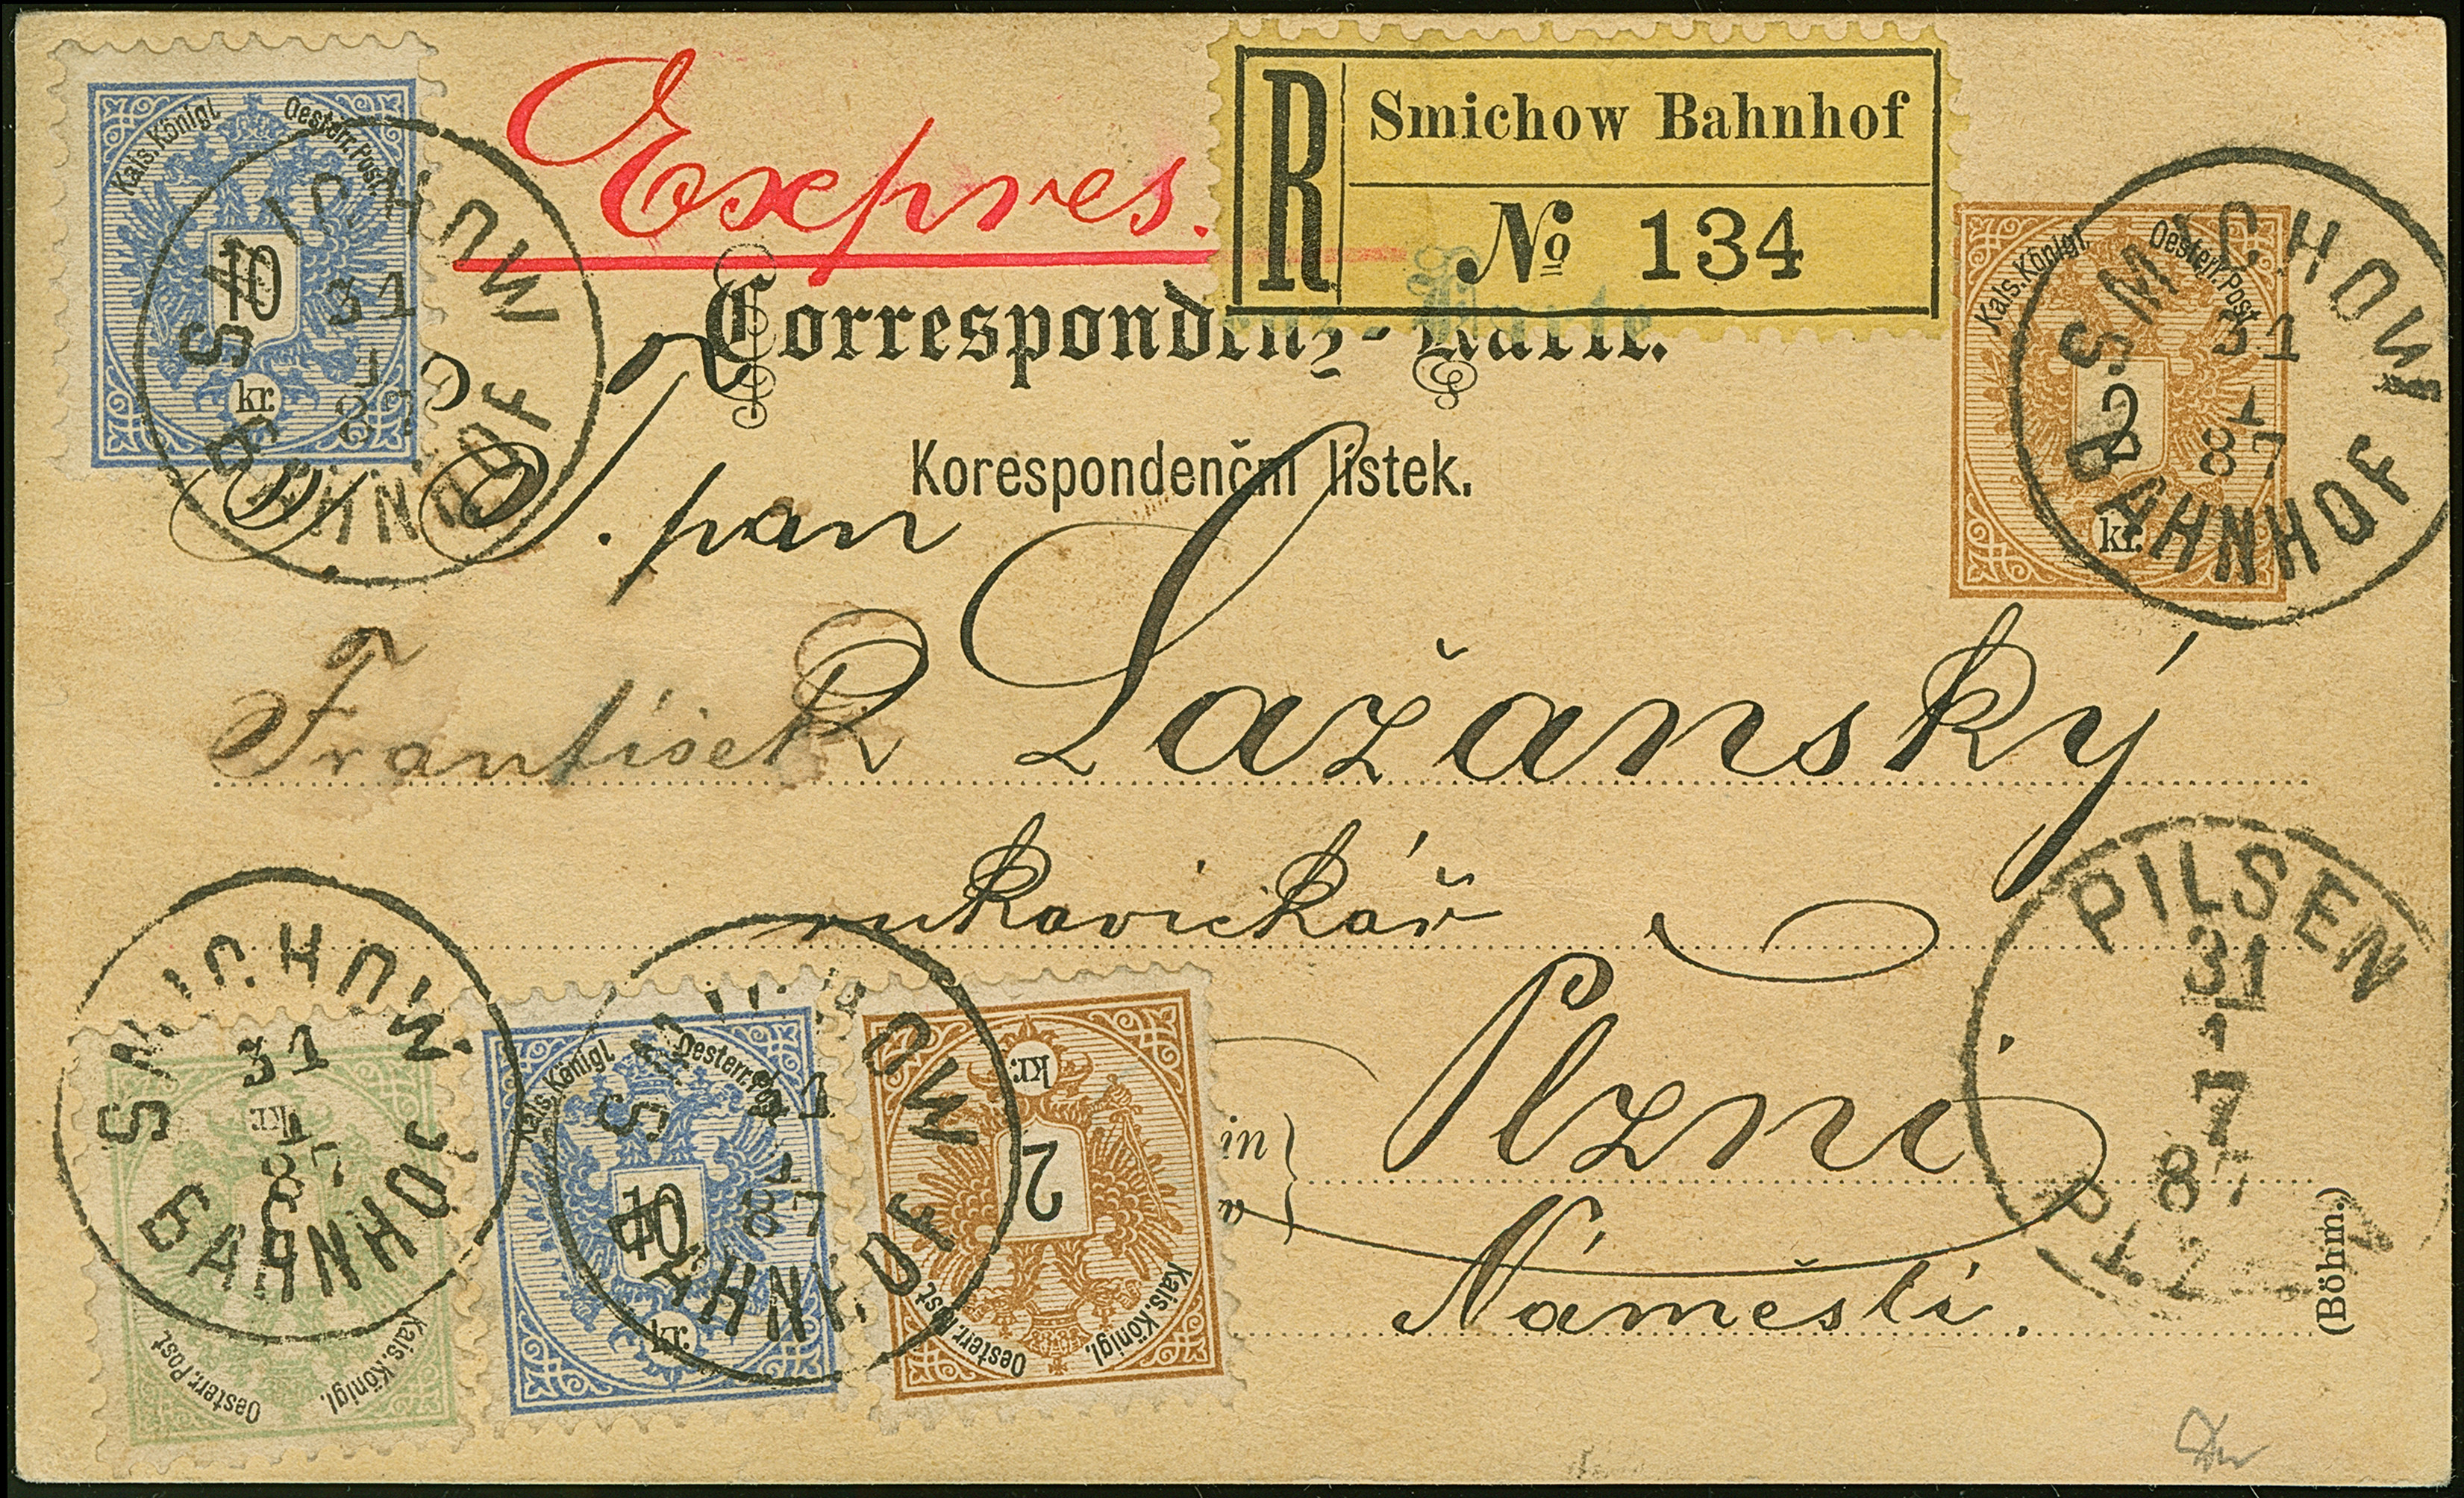 Expres.
R
Smichow Bahnhof
№ 134
Kais. Königl. Oesterr. Post.
10
kr.
SMICHOW
31
1
87
BAHNHOF
Correspondenz-Karte.
Korespondenční lístek.
Kais. Königl. Oesterr. Post.
2
kr.
SMICHOW
31
1
87
BAHNHOF
P. T. pan
František Lažanský
rukavickář
v
Plzni
in
Náměstí.
(Böhm.)
PILSEN
31
1
7
87
SMICHOW
31
1
87
BAHNHOF
kr.
Kais. Königl. Oesterr. Post.
Kais. Königl. Oesterr. Post.
10
kr.
SMICHOW
31
1
87
BAHNHOF
Kais. Königl. Oesterr. Post.
2
kr.